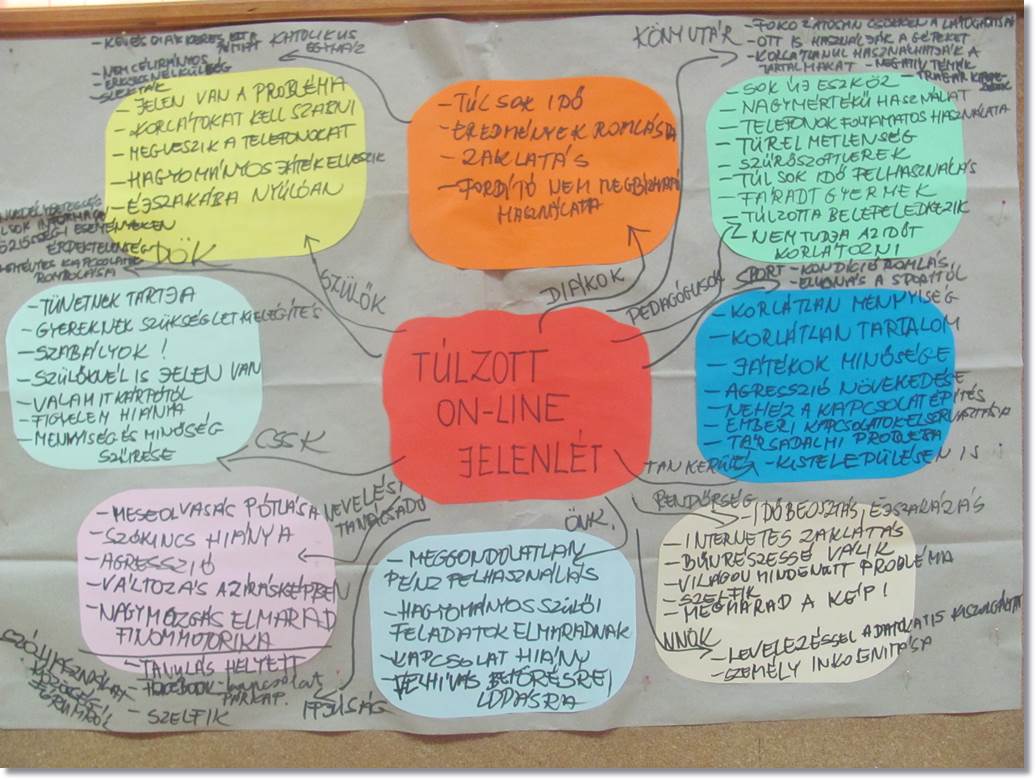 - KEVÉS DIÁK KERESI EZT A
KATOLIKUS
EGYHÁZ
- NEM CÉLIRÁNYOS
- ERKÖLCS NÉLKÜLISÉG
- SZEKTÁK
KÖNYVTÁR
- FOKOZATOSAN CSÖKKEN A LÁTOGATOTTSÁG
- OTT IS HASZNÁLJÁK A GÉPEKET
- KORLÁTLANUL HASZNÁLHATJÁK A
TARTALMAKAT - NEGATÍV TÉMÁK
- JELEN VAN A PROBLÉMA
- KORLÁTOKAT KELL SZABNI
- MEGVESZIK A TELEFONOKAT
- HAGYOMÁNYOS JÁTÉK ELVESZIK
- ÉJSZAKÁBA NYÚLÓAN
- TÚL SOK IDŐ
- EREDMÉNYEK ROMLÁSA
- ZAKLATÁS
- FORDÍTÓ NEM MEGBÍZHATÓ
HASZNÁLATA
- SOK ÚJ ESZKÖZ
- NAGYMÉRTÉKŰ HASZNÁLAT
- TELEFONOK FOLYAMATOS HASZNÁLATA
- TÜRELMETLENSÉG
- SZŰRŐSZOFTVEREK
- TÚL SOK IDŐ FELHASZNÁLÁS
- FÁRADT GYERMEK
- TÚLZOTTA BELEFELEDKEZIK
- NEM TUDJA AZ IDŐT
KORLÁTOZNI
ESEMÉNYEKEN
ÉRDEKTELENSÉG
KAPCSOLATOK
ROMBOLÁSA
DÖK
SZÜLŐK
DIÁKOK
PEDAGÓGUSOK
SPORT - KONDÍCIÓROMLÁS
- ELVONÁS A SPORTTÓL
- TÜNETNEK TARTJA
- GYEREKNEK SZÜKSÉGLETKIELÉGÍTÉS
- SZABÁLYOK!
- SZÜLŐKNÉL IS JELEN VAN
- VALAMIT KÁRPÓTOL
- FIGYELEM HIÁNYA
- MENNYISÉG ÉS MINŐSÉG
SZŰRÉSE
CSSK
TÚLZOTT
ON-LINE
JELENLÉT
- KORLÁTLAN MENNYISÉG
- KORLÁTLAN TARTALOM
- JÁTÉKOK MINŐSÉGE
- AGRESSZIÓ NÖVEKEDÉSE
- NEHÉZ A KAPCSOLATÉPÍTÉS
- EMBERI KAPCSOLATOK ELSORVASZTÁSA
- TÁRSADALMI PROBLÉMA
- KISTELEPÜLÉSEN IS
TANKERÜLET
RENDŐRSÉG
NEVELÉSI
TANÁCSADÓ
ÖNK.
- MESEOLVASÁS PÓTLÁSA
- SZÓKINCS HIÁNYA
- AGRESSZIÓ
- VÁLTOZÁS AZ ÍRÁSKÉPBEN
- NAGYMOZGÁS ELMARAD
FINOMMOTORIKA
- TANULÁS HELYETT
- FACEBOOK - kapcsolat
PÁRKAP.
- SZELFIK
IFJÚSÁG
- MEGGONDOLATLAN
PÉNZFELHASZNÁLÁS
- HAGYOMÁNYOS SZÜLŐI
FELADATOK ELMARADNAK
- KAPCSOLAT HIÁNY
- FELHÍVÁS BETÖRÉSRE,
LOPÁSRA
- IDŐBEOSZTÁS, ÉJSZAKÁZÁS
- INTERNETES ZAKLATÁS
- BŰNRÉSZESSÉ VÁLIK
- VILÁGON MINDENÜTT PROBLÉMA
- SZELFIK
- MEGMARAD A KÉP!
NNÖK
- LEVELEZÉSSEL ADATOKAT IS KISZOLGÁLTAT
- SZEMÉLY INKOGNITÓSA